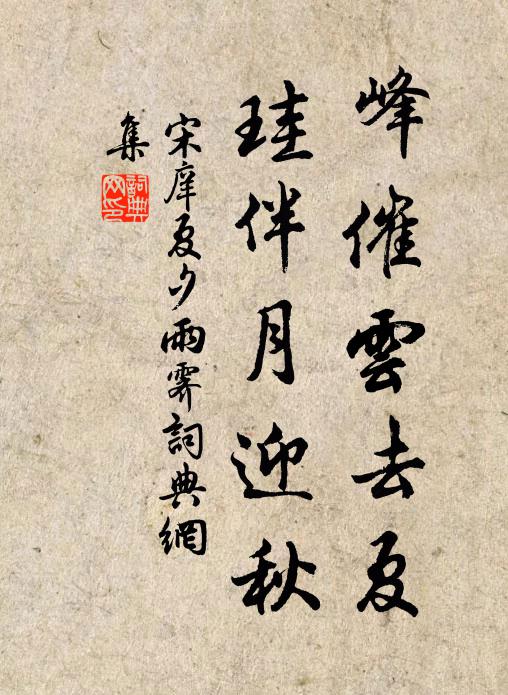 峰催雲去夏
珪伴月迎秋
宋庠夏夕雨霽詞典網
集
詞典
网印